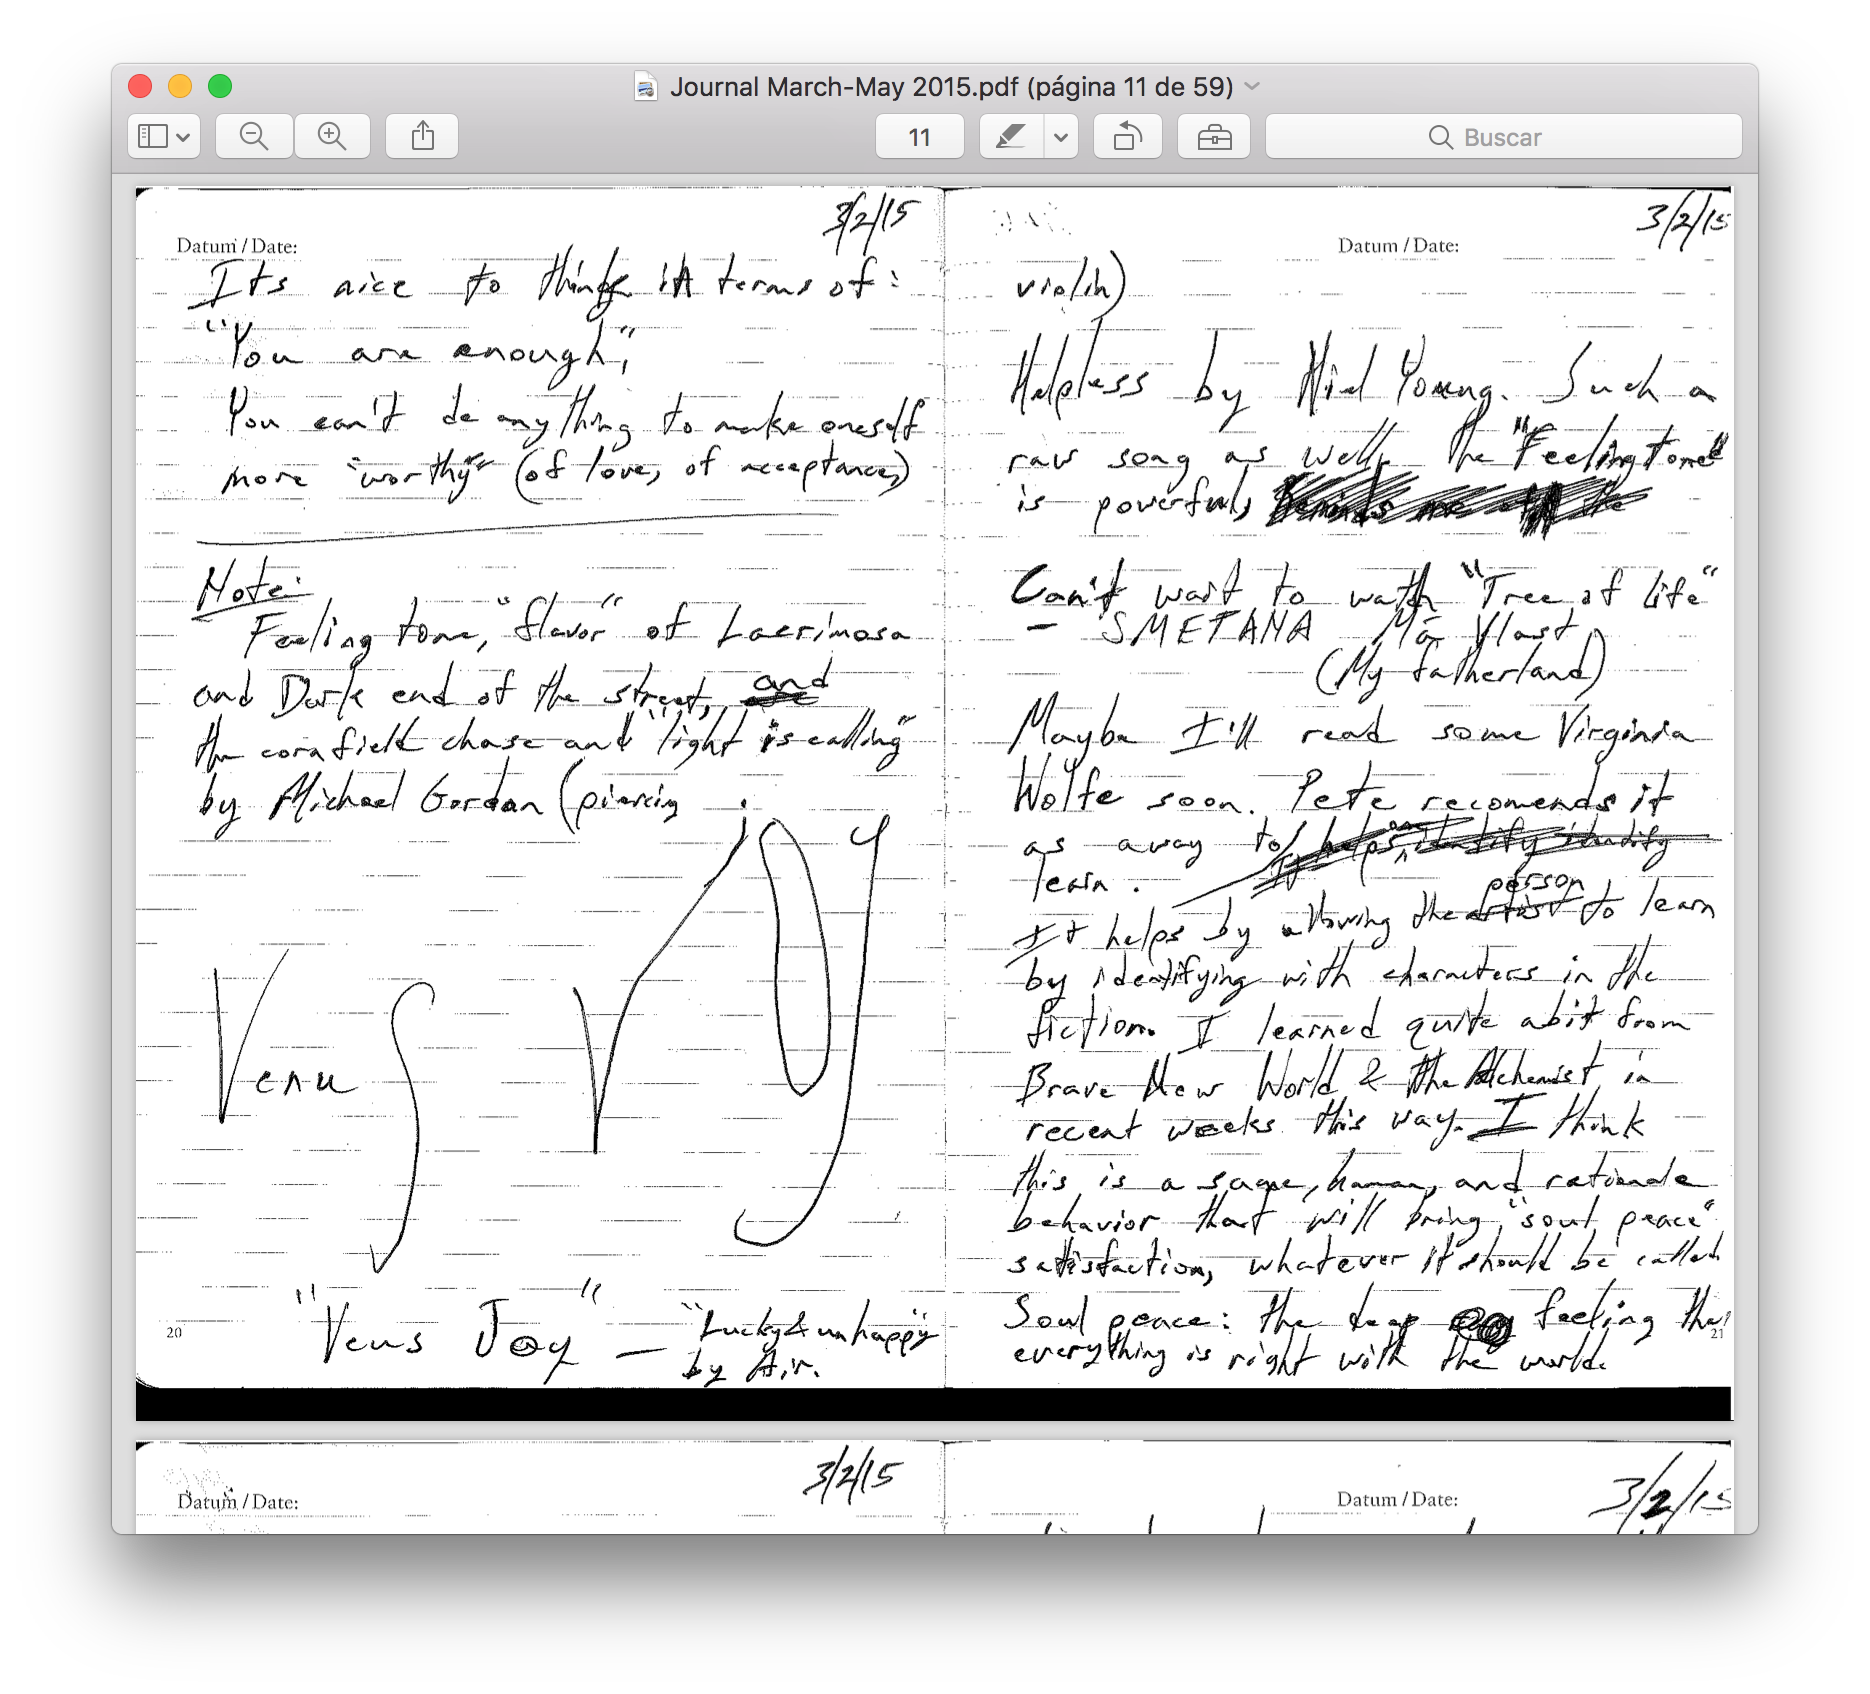 Journal March-May 2015.pdf (página 11 de 59)
11
Buscar
3/2/15
Datum / Date:
Its nice to think in terms of:
"You are enough",
You can't do anything to make oneself
more "worthy" (of love, of acceptance,)
Note:
Feeling tone, "flavor" of Lacrimosa
and Dark end of the street, and
the cornfield chase and "light is calling"
by Michael Gordon (piercing
Venus
"Venus Joy" — "Lucky & unhappy"
by Air.
20
3/2/15
Datum / Date:
violin)
Helpless by Niel Young. Such a
raw song as well. The "Feeling tone"
is powerful,
Can't wait to watch "Tree of life"
- SMETANA Má Vlast
(My fatherland)
Maybe I'll read some Virginia
Wolfe soon. Pete recomends it
as away to
learn.
It helps by allowing the person to learn
by identifying with characters in the
fiction. I learned quite abit from
Brave New World & The Alchemist in
recent weeks this way. I think
this is a sage, human, and rationale
behavior that will bring "soul peace"
satisfaction, whatever it should be called
Soul peace: the deep feeling that
everything is right with the world.
21
3/2/15
Datum / Date:
3/2/15
Datum / Date: